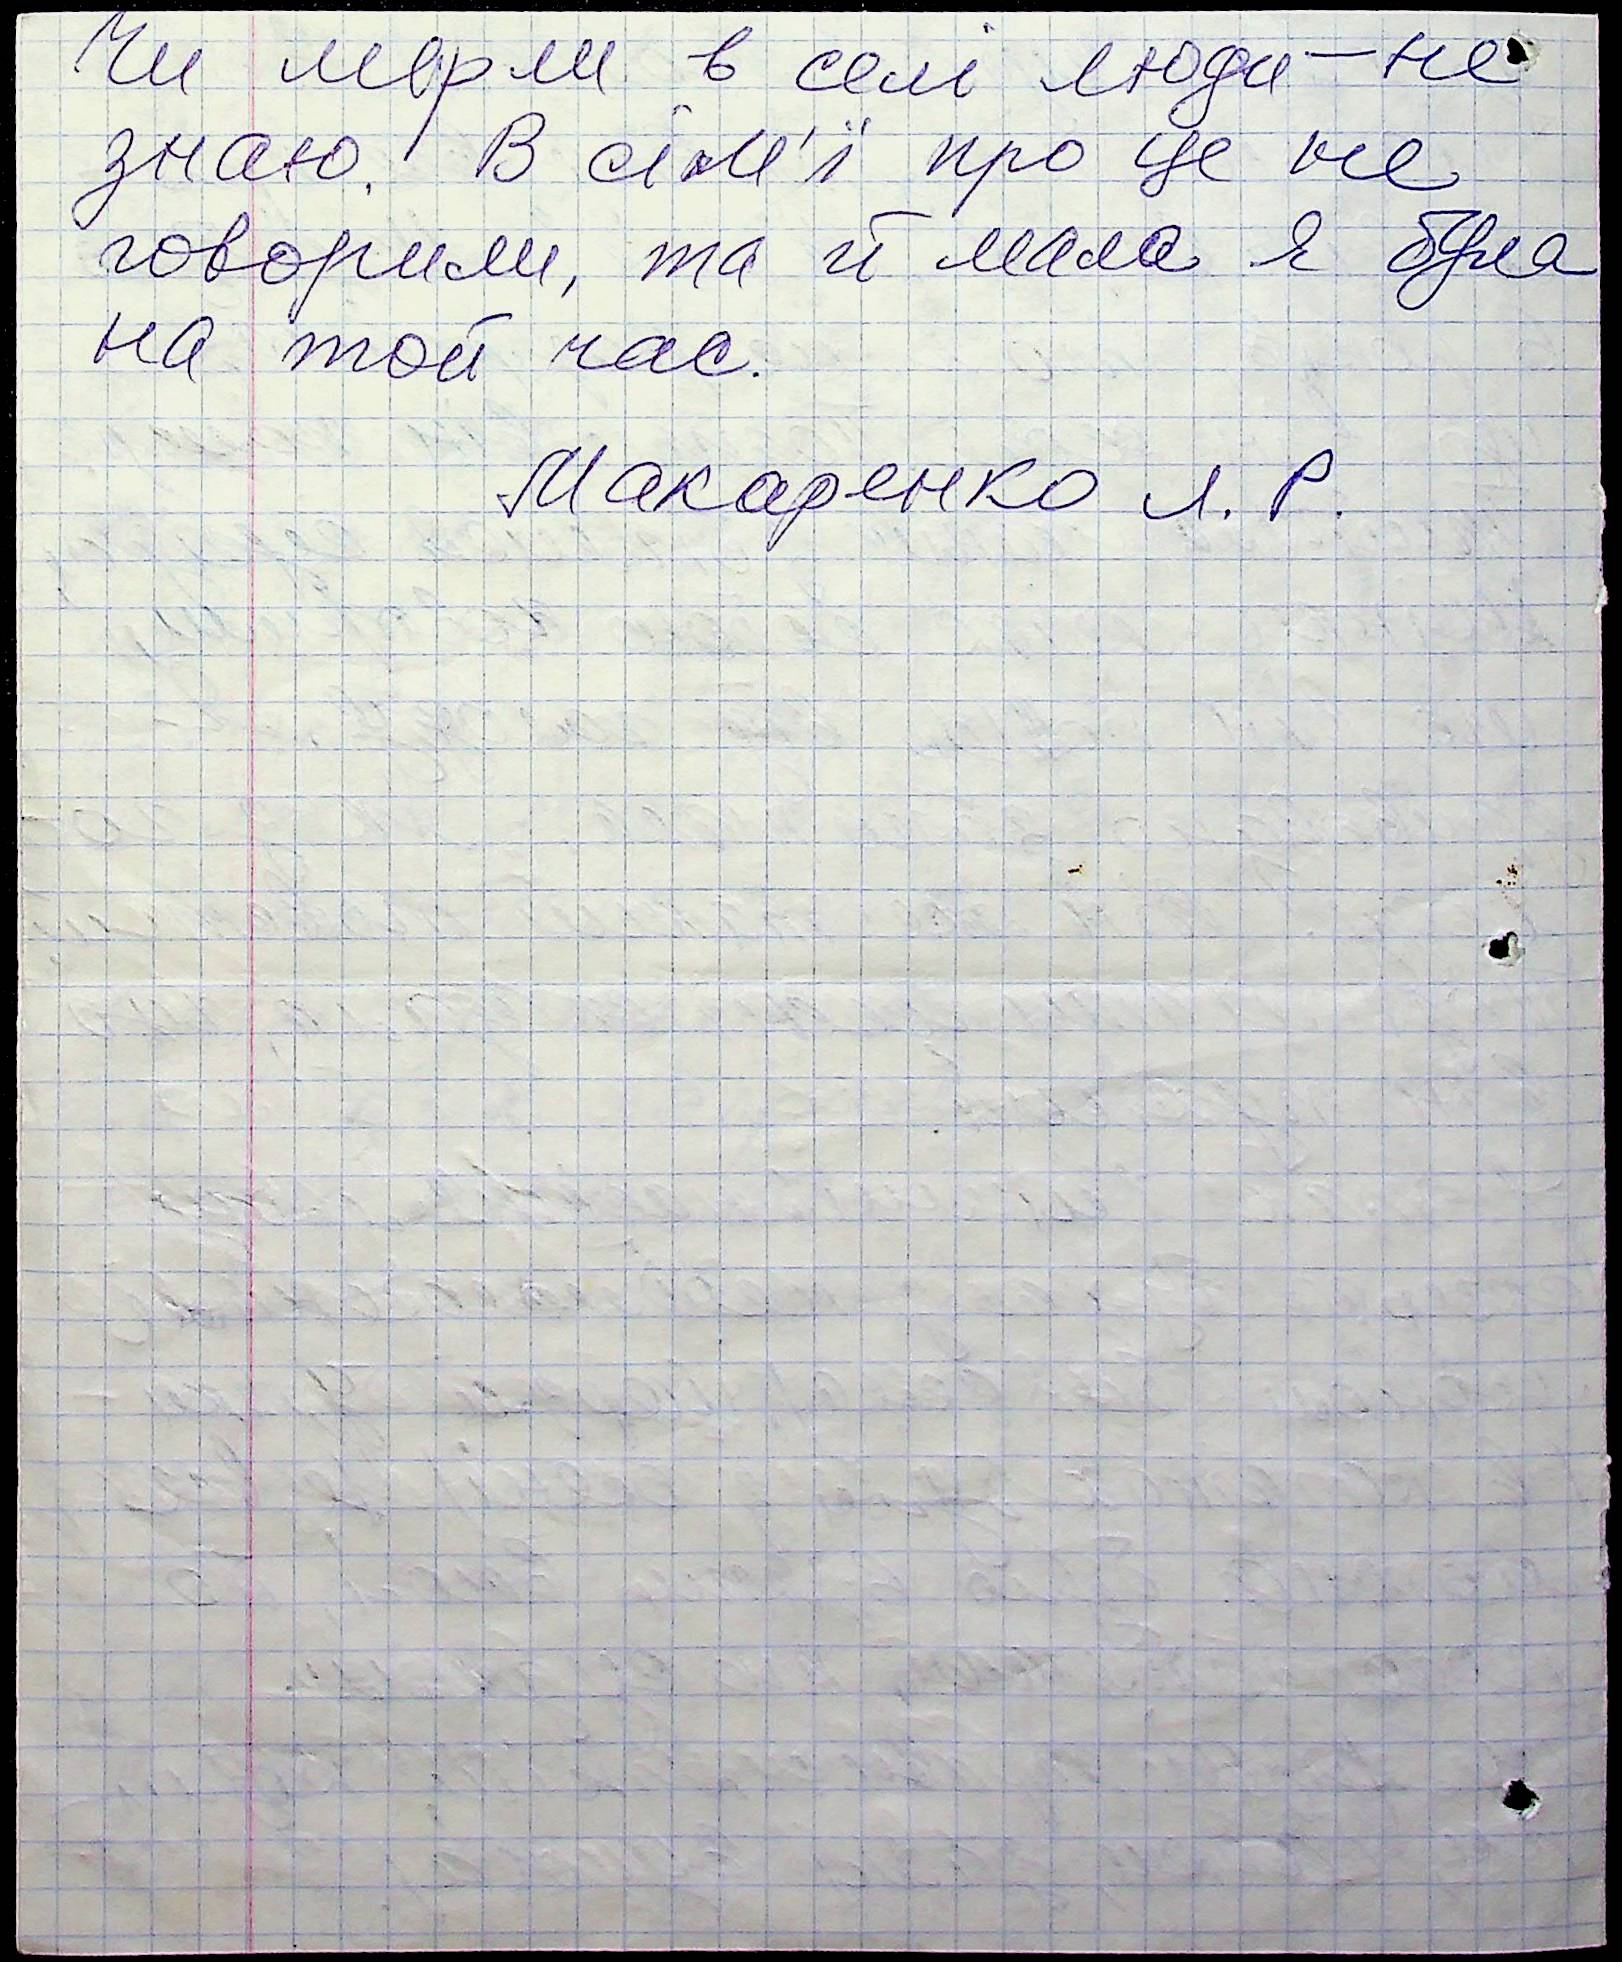 Чи мерли в селі люди – не
знаю. В сім'ї про це не
говорили, та й мала я була
на той час.
Макаренко Л. Р.